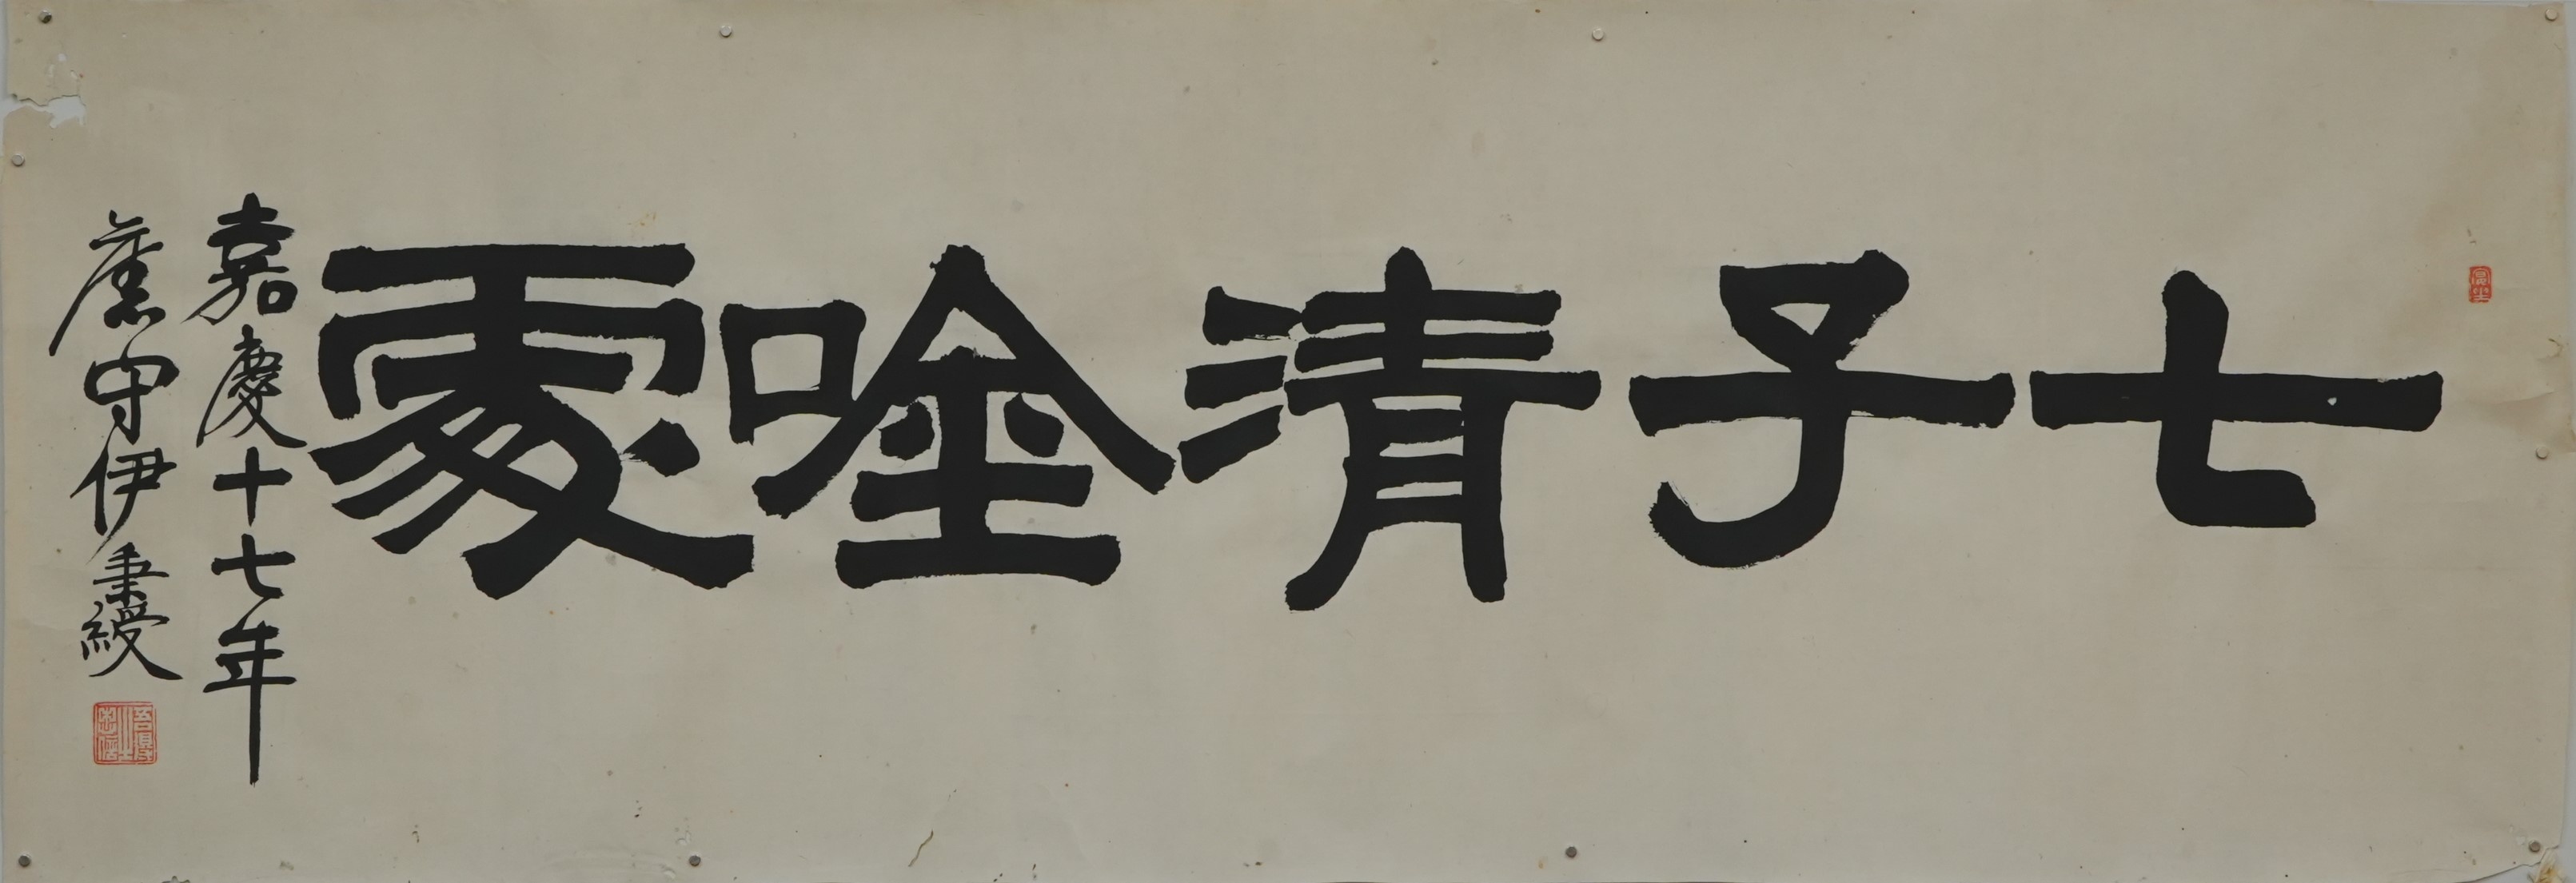 七子清唫處
嘉慶十七年
舊守伊秉綬